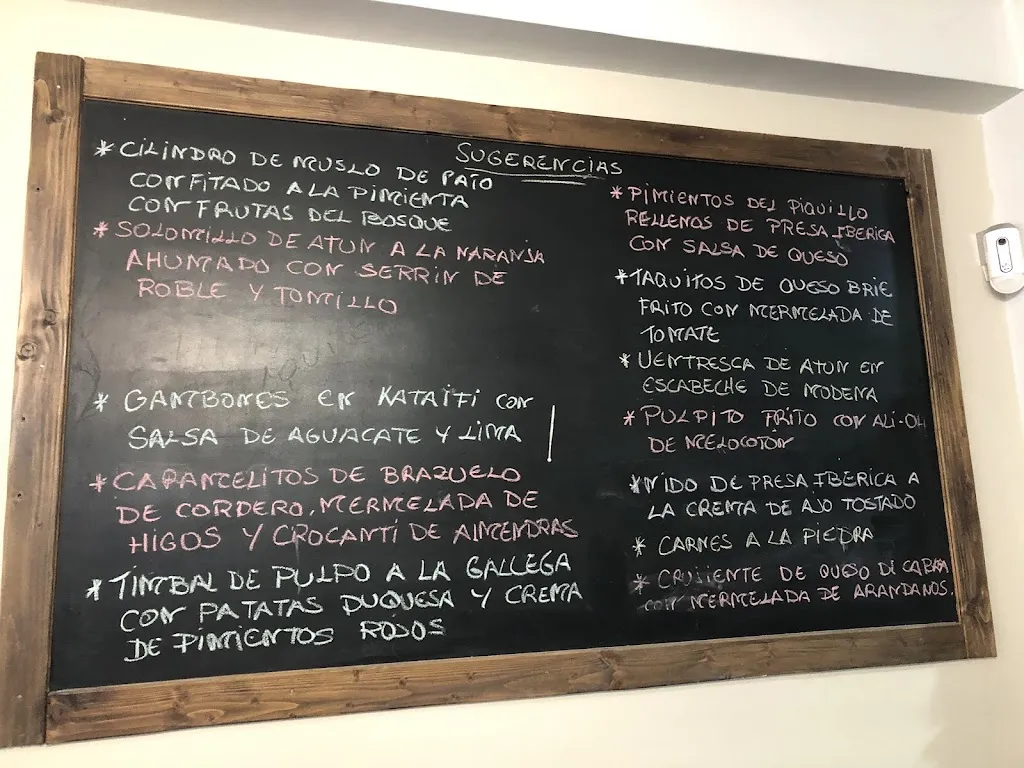 SUGERENCIAS
* CILINDRO DE MUSLO DE PATO
CONFITADO A LA PIMIENTA
CON FRUTAS DEL BOSQUE
* SOLOMILLO DE ATUN A LA NARANJA
AHUMADO CON SERRIN DE
ROBLE Y TOMILLO
* GAMBONES EN KATAIFI CON
SALSA DE AGUACATE Y LIMA
* CARAMELITOS DE BRAZUELO
DE CORDERO, MERMELADA DE
HIGOS Y CROCANTI DE ALMENDRAS
* TIMBAL DE PULPO A LA GALLEGA
CON PATATAS DUQUESA Y CREMA
DE PIMIENTOS ROJOS
* PIMIENTOS DEL PIQUILLO
RELLENOS DE PRESA IBERICA
CON SALSA DE QUESO
* TAQUITOS DE QUESO BRIE
FRITO CON MERMELADA DE
TOMATE
* VENTRESCA DE ATUN EN
ESCABECHE DE MODENA
* PULPITO FRITO CON ALI-OLI
DE MELOCOTON
* NIDO DE PRESA IBERICA A
LA CREMA DE AJO TOSTADO
* CARNES A LA PIEDRA
* CRUJIENTE DE QUESO DE CABRA
CON MERMELADA DE ARANDANOS.